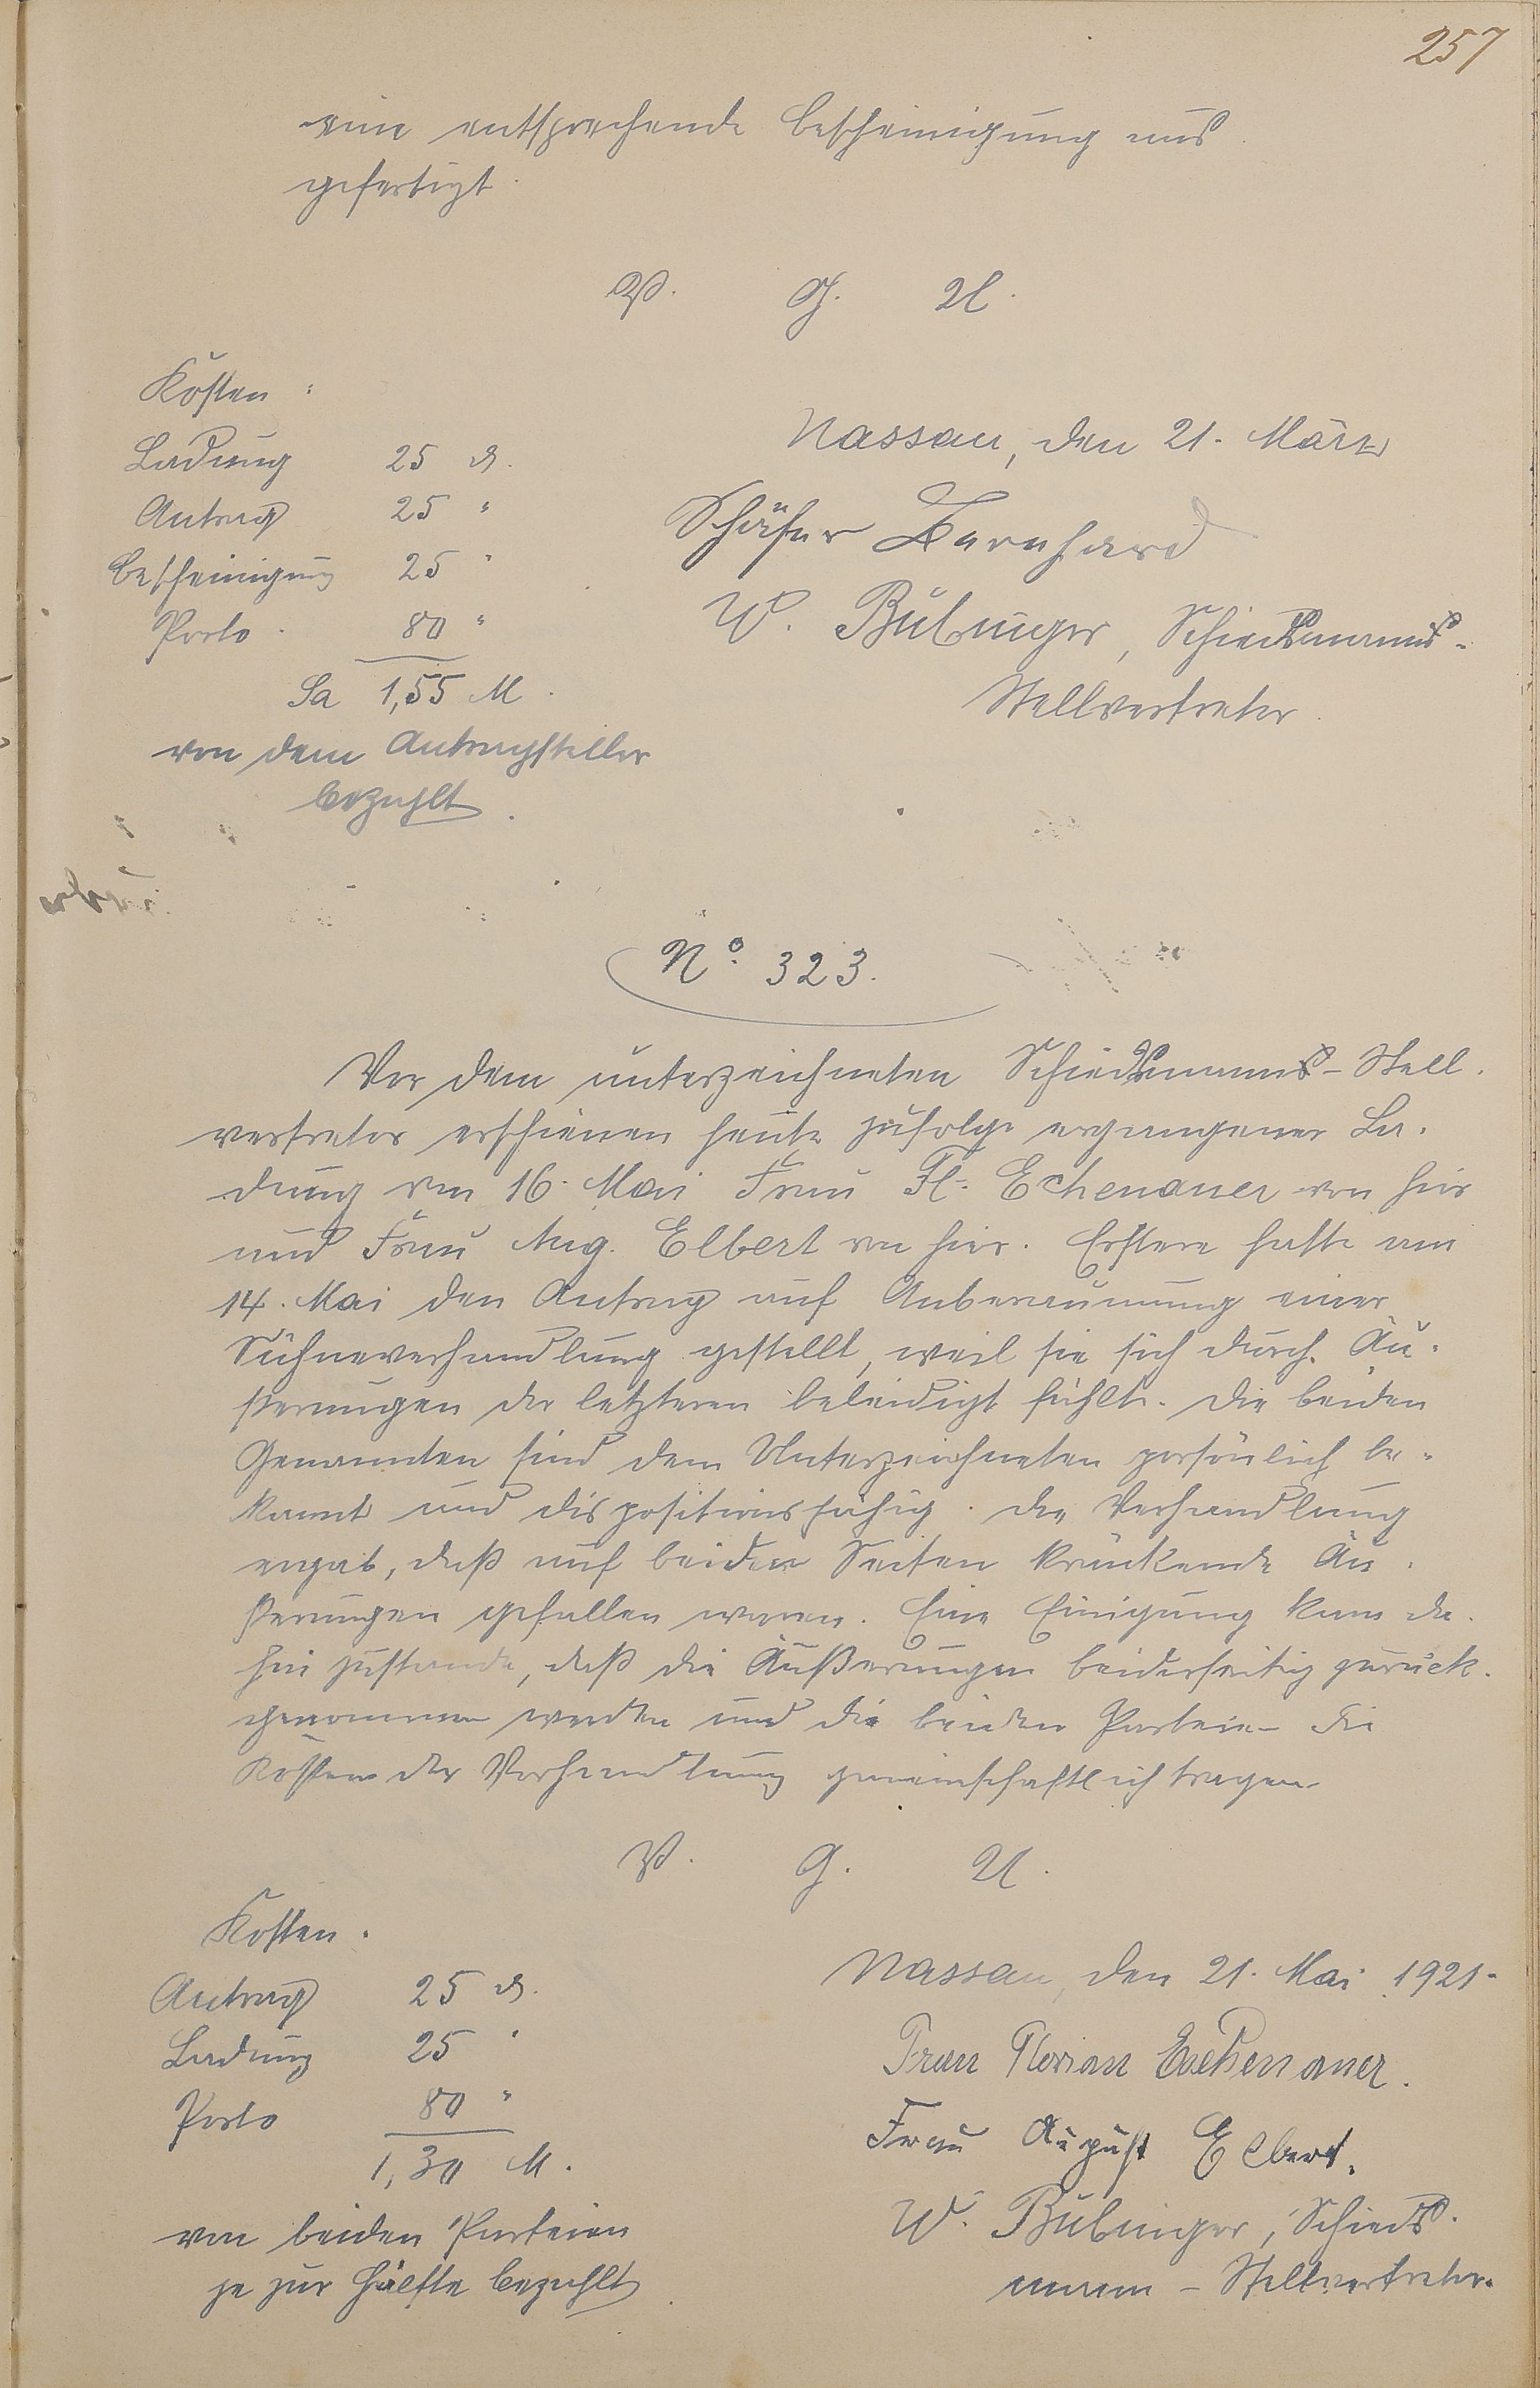 257
eine entsprechende Bescheinigung aus
gefertigt.
V. G. U.
Kosten:
Ladung 25 ₰.
Antrag 25 "
Bescheinigung 25 "
Porto. 80 "
Sa 1,55 M.
von dem Antragsteller
bezahlt.
Nassau, den 21. März
Schäfer Bernhard
W. Bubinger, Schiedsmanns-
Stellvertreter.
No. 323.
Vor dem unterzeichneten Schiedsmanns-Stell-
vertreter erschienen heute zufolge ergangener La-
dung vom 16. Mai Frau Fl. Echenauer von hier
und Frau Aug. Elbert von hier. Erstere hatte am
14. Mai den Antrag auf Anberaumung einer
Sühneverhandlung gestellt, weil sie sich durch Äu-
ßerungen der letzteren beleidigt fühlte. Die beiden
Genannten sind dem Unterzeichneten persönlich be-
kannt und dispositionsfähig. Die Verhandlung
ergab, daß auf beiden Seiten kränkende Äu-
ßerungen gefallen waren. Eine Einigung kam da-
hin zustande, daß die Äußerungen beiderseitig zurück-
genommen werden und die beiden Parteien die
Kosten der Verhandlung gemeinschaftlich tragen.
V. G. U.
Kosten.
Antrag 25 ₰.
Ladung 25 "
Porto 80 "
1,30 M.
von beiden Parteien
je zur Hälfte bezahlt.
Nassau, den 21. Mai 1921.
Frau Florian Eschenauer.
Frau August Elbert.
W. Bubinger, Schieds-
mann-Stellvertreter.